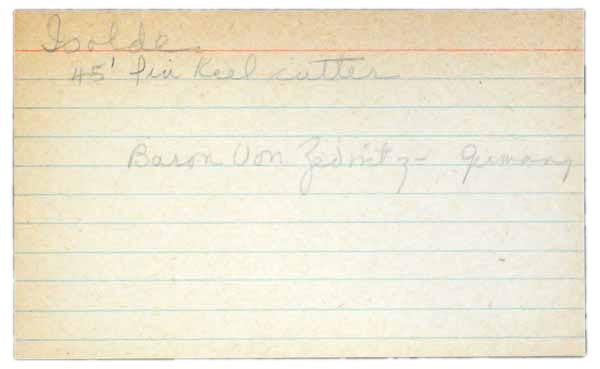 Isolde
45' fin Keel cutter
Baron Von Zedwitz - Germany